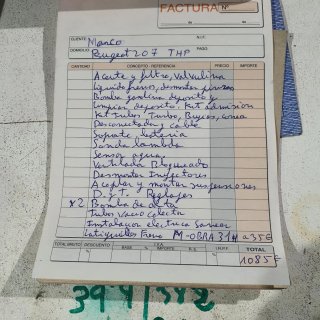 FACTURA Nº
de de
CLIENTE Marco N.I.F.
DOMICILIO Peugeot 207 THP PAGO
CANTIDAD CONCEPTO - REFERENCIA PRECIO IMPORTE
Aceite y filtro, valvulina
Liquido frenos, desmontar
Bomba gasolina deposito y
limpiar deposito. Kit admision
Kit tubos Turbo, Bujias,
Desconectador y cable
Soporte, bateria
Sonda lambda
Sensor agua,
Ventilador Bloqueado
Desmontar Inyectores
Acoplar y montar suspensiones
Reglajes
x2 Bomba de
Tubo vacio colector
Instalacion electrica Sensor
Latiguillos Freno M-OBRA 31H a 35€
TOTAL BRUTO DESCUENTO I.V.A. TOTAL
BASE % IMPORTE R.E.
1085€
394/342